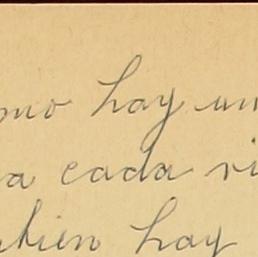 mo hay un
a cada vi
bien hay